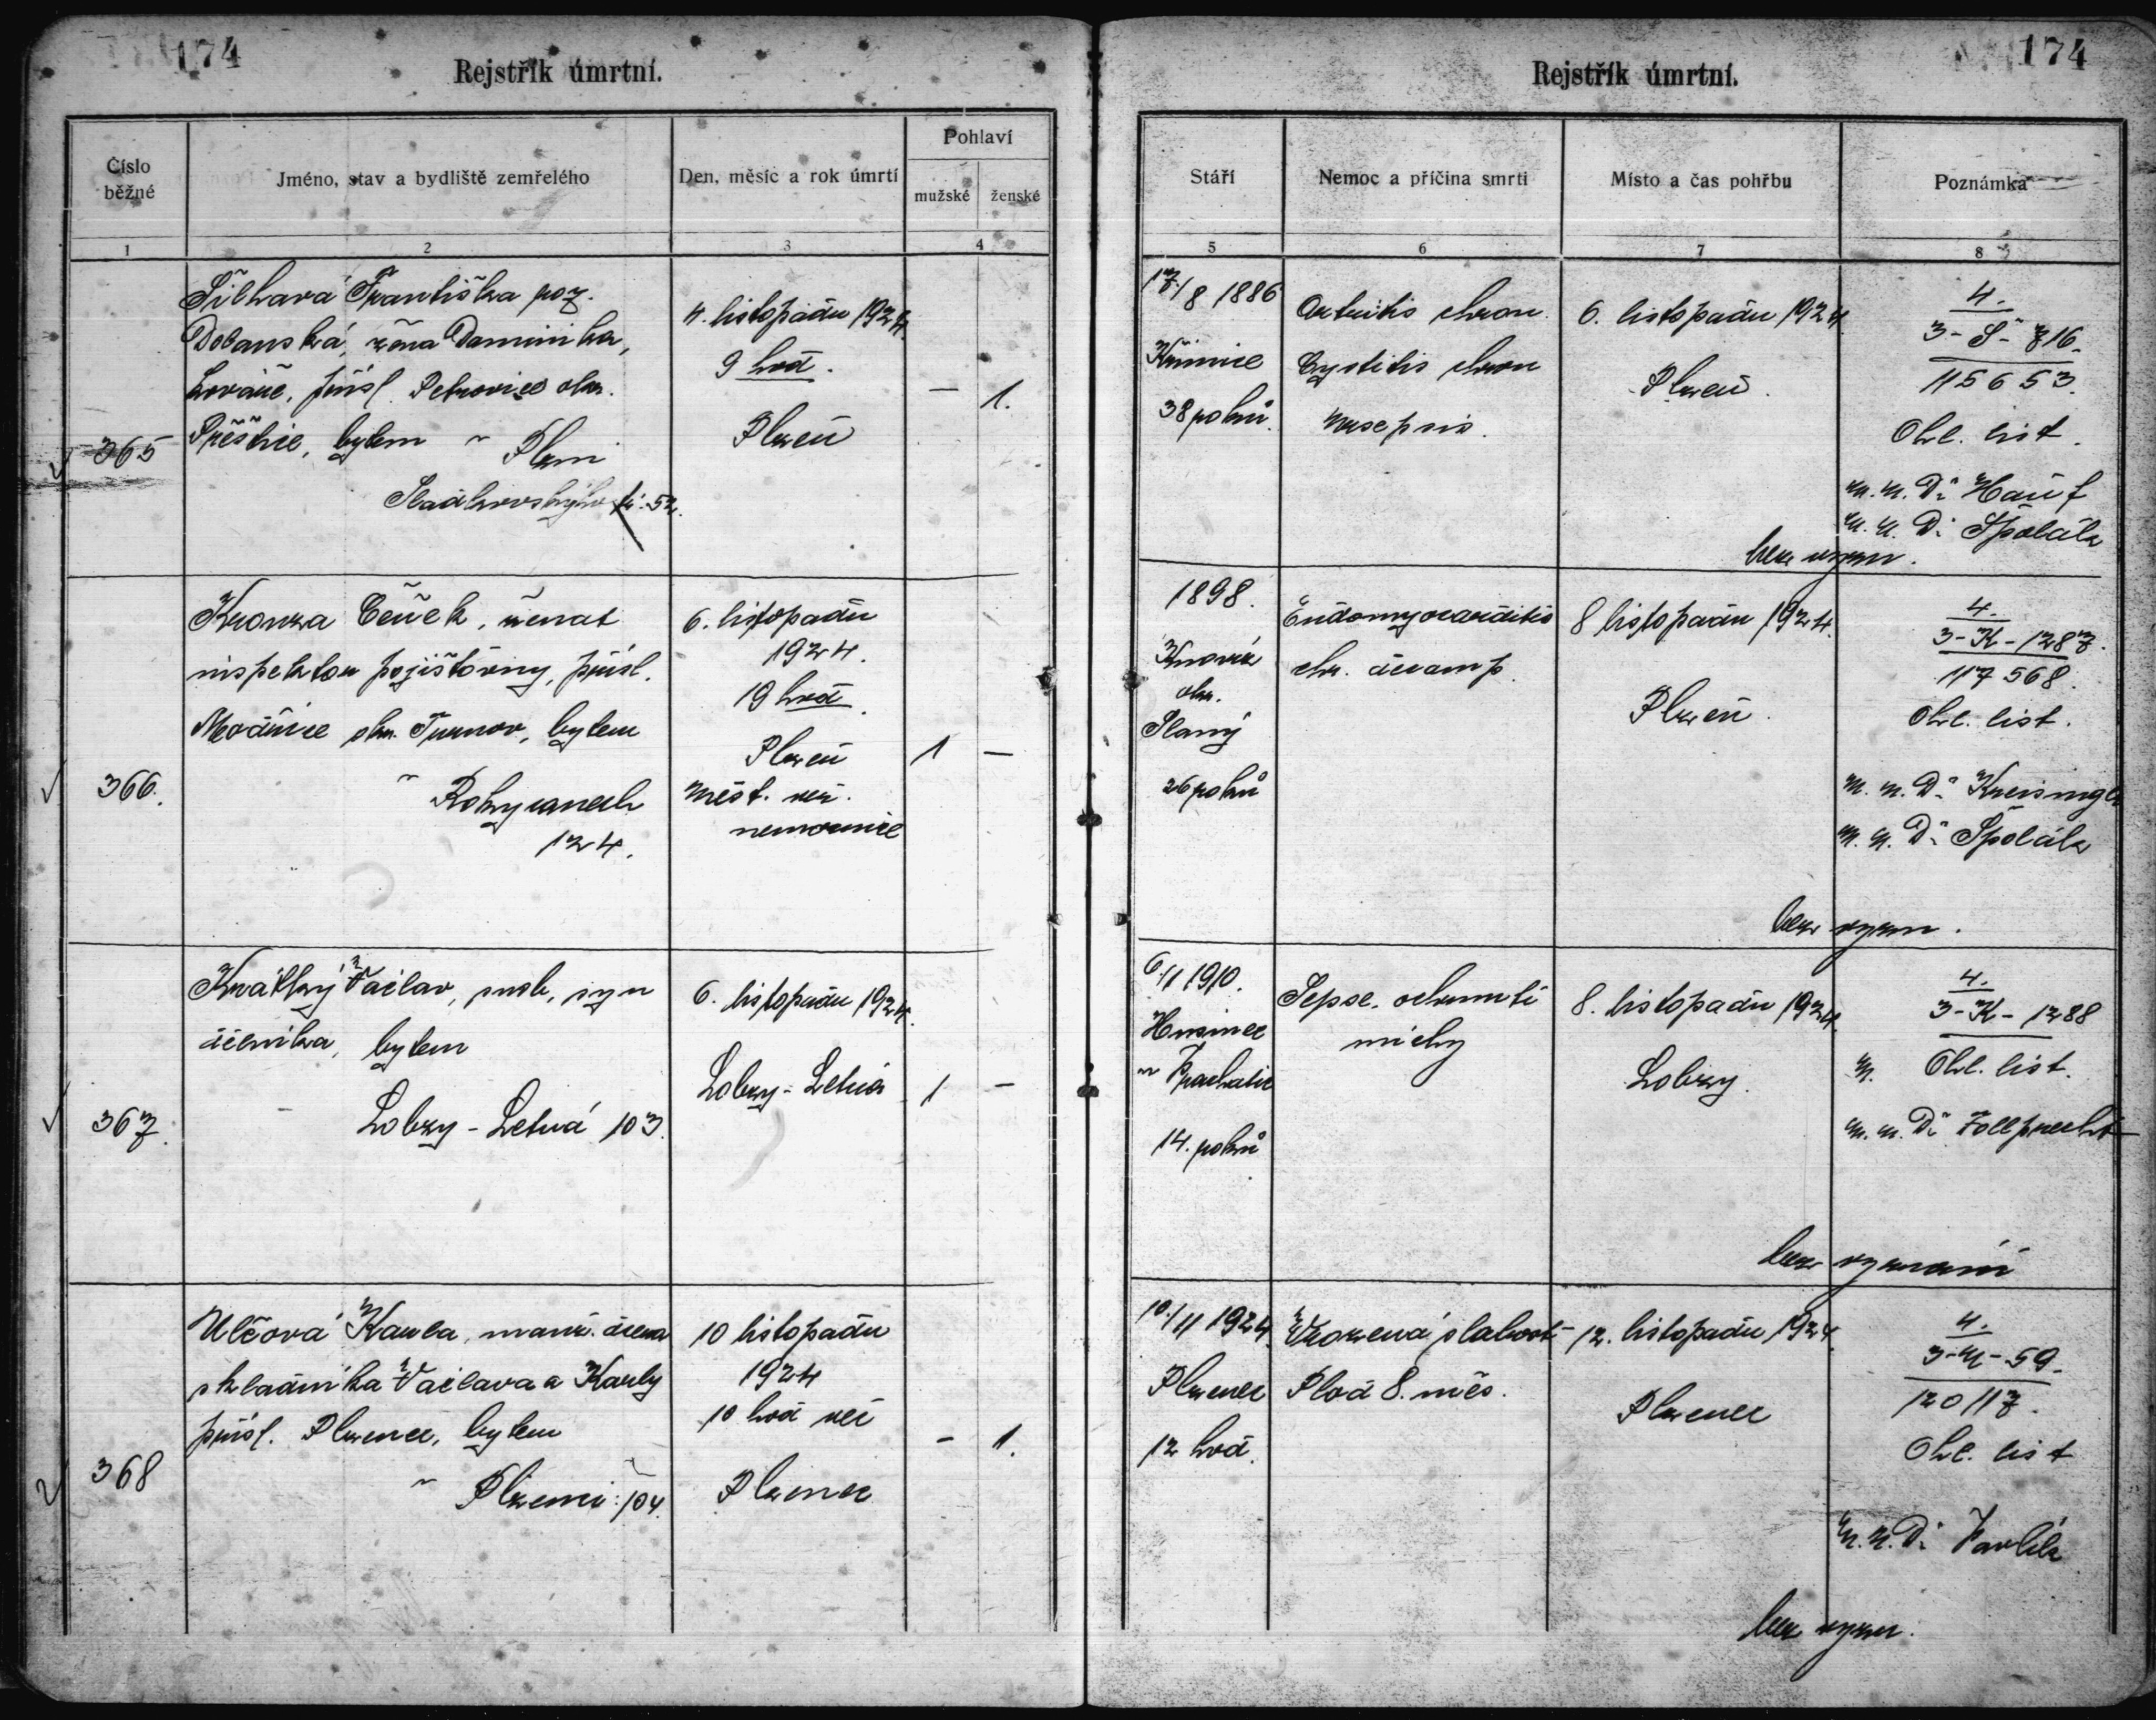 174
Rejstřík úmrtní.
Číslo běžné
Jméno, stav a bydliště zemřelého
Den, měsíc a rok úmrtí
Pohlaví
mužské
ženské
1
2
3
4
365
Šilhavá Františka roz.
žena Dominika,
kováře, přísl. Petrovice okr.
Přeštice, bytem v Plzni
Sladkovského tř. 52.
4. listopadu 1924.
9 hod.
Plzeň
—
1.
366.
Čeněk, ženat
inspektor pojišťovny, přísl.
okr. Turnov, bytem
v Rokycanech
124.
6. listopadu
1924.
19 hod.
Plzeň
měst. veř.
nemocnice
1
—
367.
Krátký Václav, svob., syn
dělníka, bytem
Lobzy - Letná 103.
6. listopadu 1924.
Lobzy - Letná
1
—
368
Ulčová Karla, manž. dcera
skladníka Václava a Karly
přísl. Plzenec, bytem
v Plzenci: 104.
10 listopadu
1924
10 hod več
Plzenec
-
1.
174
Rejstřík úmrtní.
Stáří
Nemoc a příčina smrti
Místo a čas pohřbu
Poznámka
5
6
7
8
17/8 1886
Křimice
38 roků.
chron.
Cystitis chron
Urosepsis.
6. listopadu 1924
Plzeň.
4.
3-Š-716.
115653.
Ohl. list.
M. U. Dr Hauf
M. U. Dr Špolák
bez vyzn.
1898.
okr.
Slaný
26 roků
Endomyocarditis
chr. decomp.
8 listopadu 1924.
Plzeň.
4.
3-K-1287.
117568.
Ohl. list.
M. U. Dr Kreisingr
M. U. Dr Špolák
bez vyzn.
6/11 1910.
Husinec
u Prachatic
14. roků
Sepse, ochrnutí
míchy
8. listopadu 1924.
Lobzy.
4.
3-K-1288
Ohl. list.
M. U. Dr Follprecht
bez vyznání
10/11 1924.
Plzenec
12 hod.
Vrozená slabost
Plod 8. měs.
12. listopadu 1924.
Plzenec
4.
3-U-59.
120117.
Ohl. list
M. U. Dr Pavlík
bez vyzn.